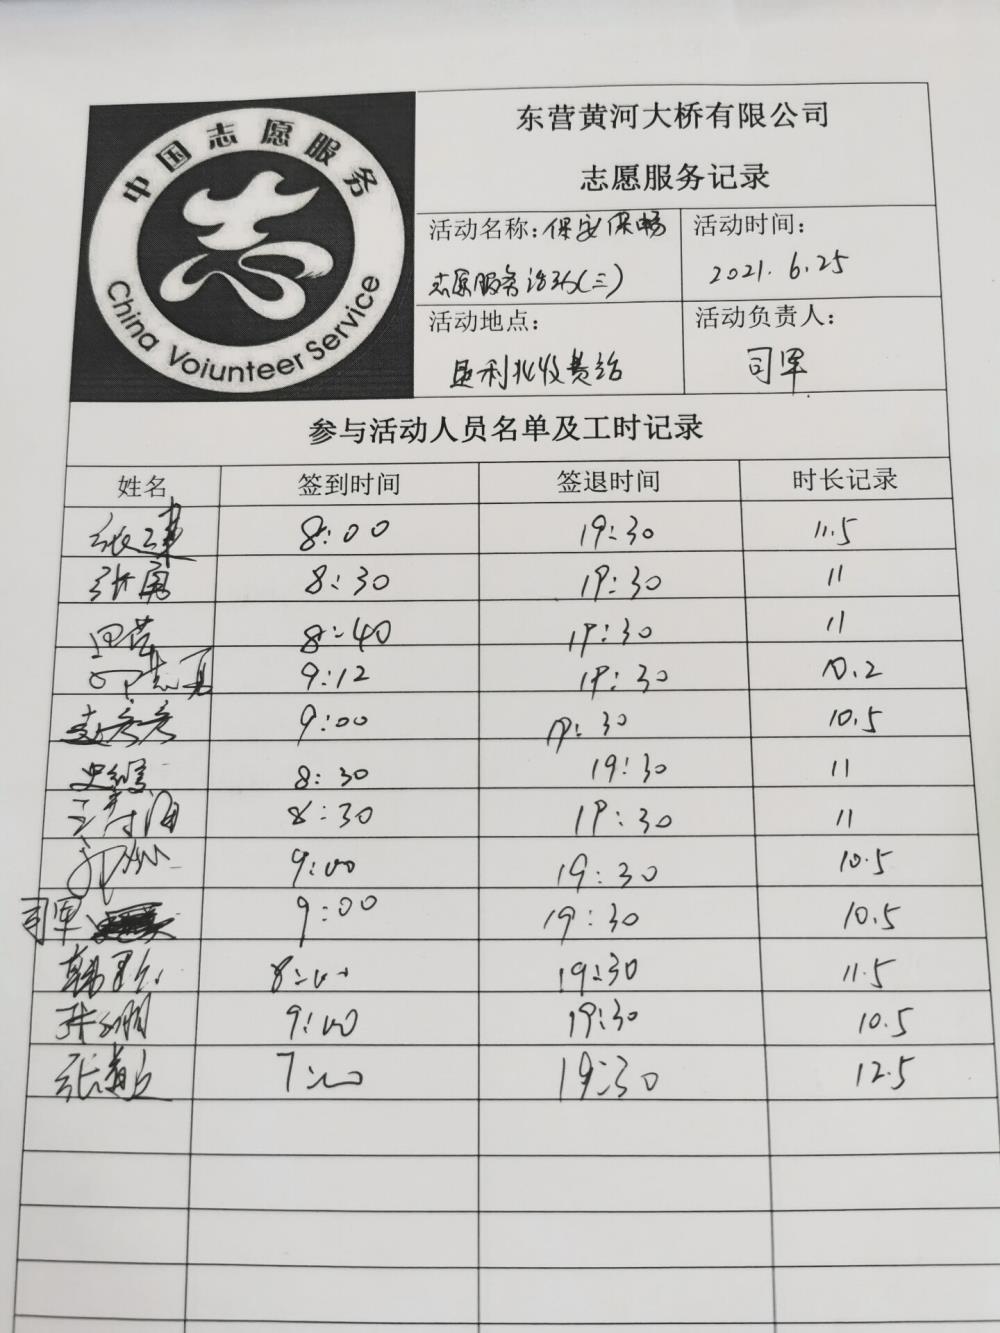 中国志愿服务
China Voiunteer Service
东营黄河大桥有限公司
志愿服务记录
活动名称：保安保畅
志愿服务活动(三)
活动时间：
2021.6.25
活动地点：
垦利北收费站
活动负责人：
司军
参与活动人员名单及工时记录
姓名 签到时间 签退时间 时长记录
8:00 19:30 11.5
8:30 19:30 11
8:40 19:30 11
9:12 19:30 10.2
9:00 19:30 10.5
8:30 19:30 11
8:30 19:30 11
9:00 19:30 10.5
司军 9:00 19:30 10.5
8:00 19:30 11.5
9:00 19:30 10.5
张 7:00 19:30 12.5